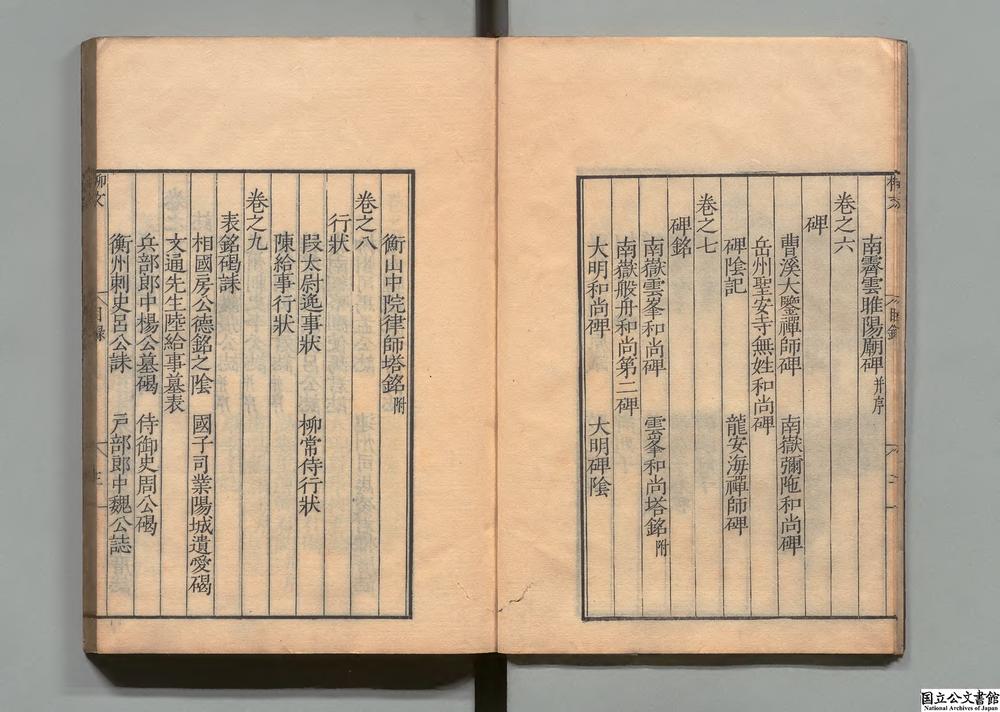 南霽雲睢陽廟碑 并序
卷之六
碑
曹溪大鑒禪師碑 南嶽彌陁和尚碑
岳州聖安寺無姓和尚碑
碑陰記 龍安海禪師碑
卷之七
碑銘
南嶽雲峯和尚碑 雲峯和尚塔銘 附
南嶽般舟和尚第二碑
大明和尚碑 大明碑陰
衡山中院律師塔銘 附
卷之八
行狀
段太尉逸事狀 柳常侍行狀
陳給事行狀
卷之九
表銘碣誄
相國房公德銘之陰 國子司業陽城遺愛碣
文通先生陸給事墓表
兵部郎中楊公墓碣 侍御史周公碣
衡州刺史呂公誄 戸部郎中魏公誌
柳文 目錄 三
国立公文書館
National Archives of Japan